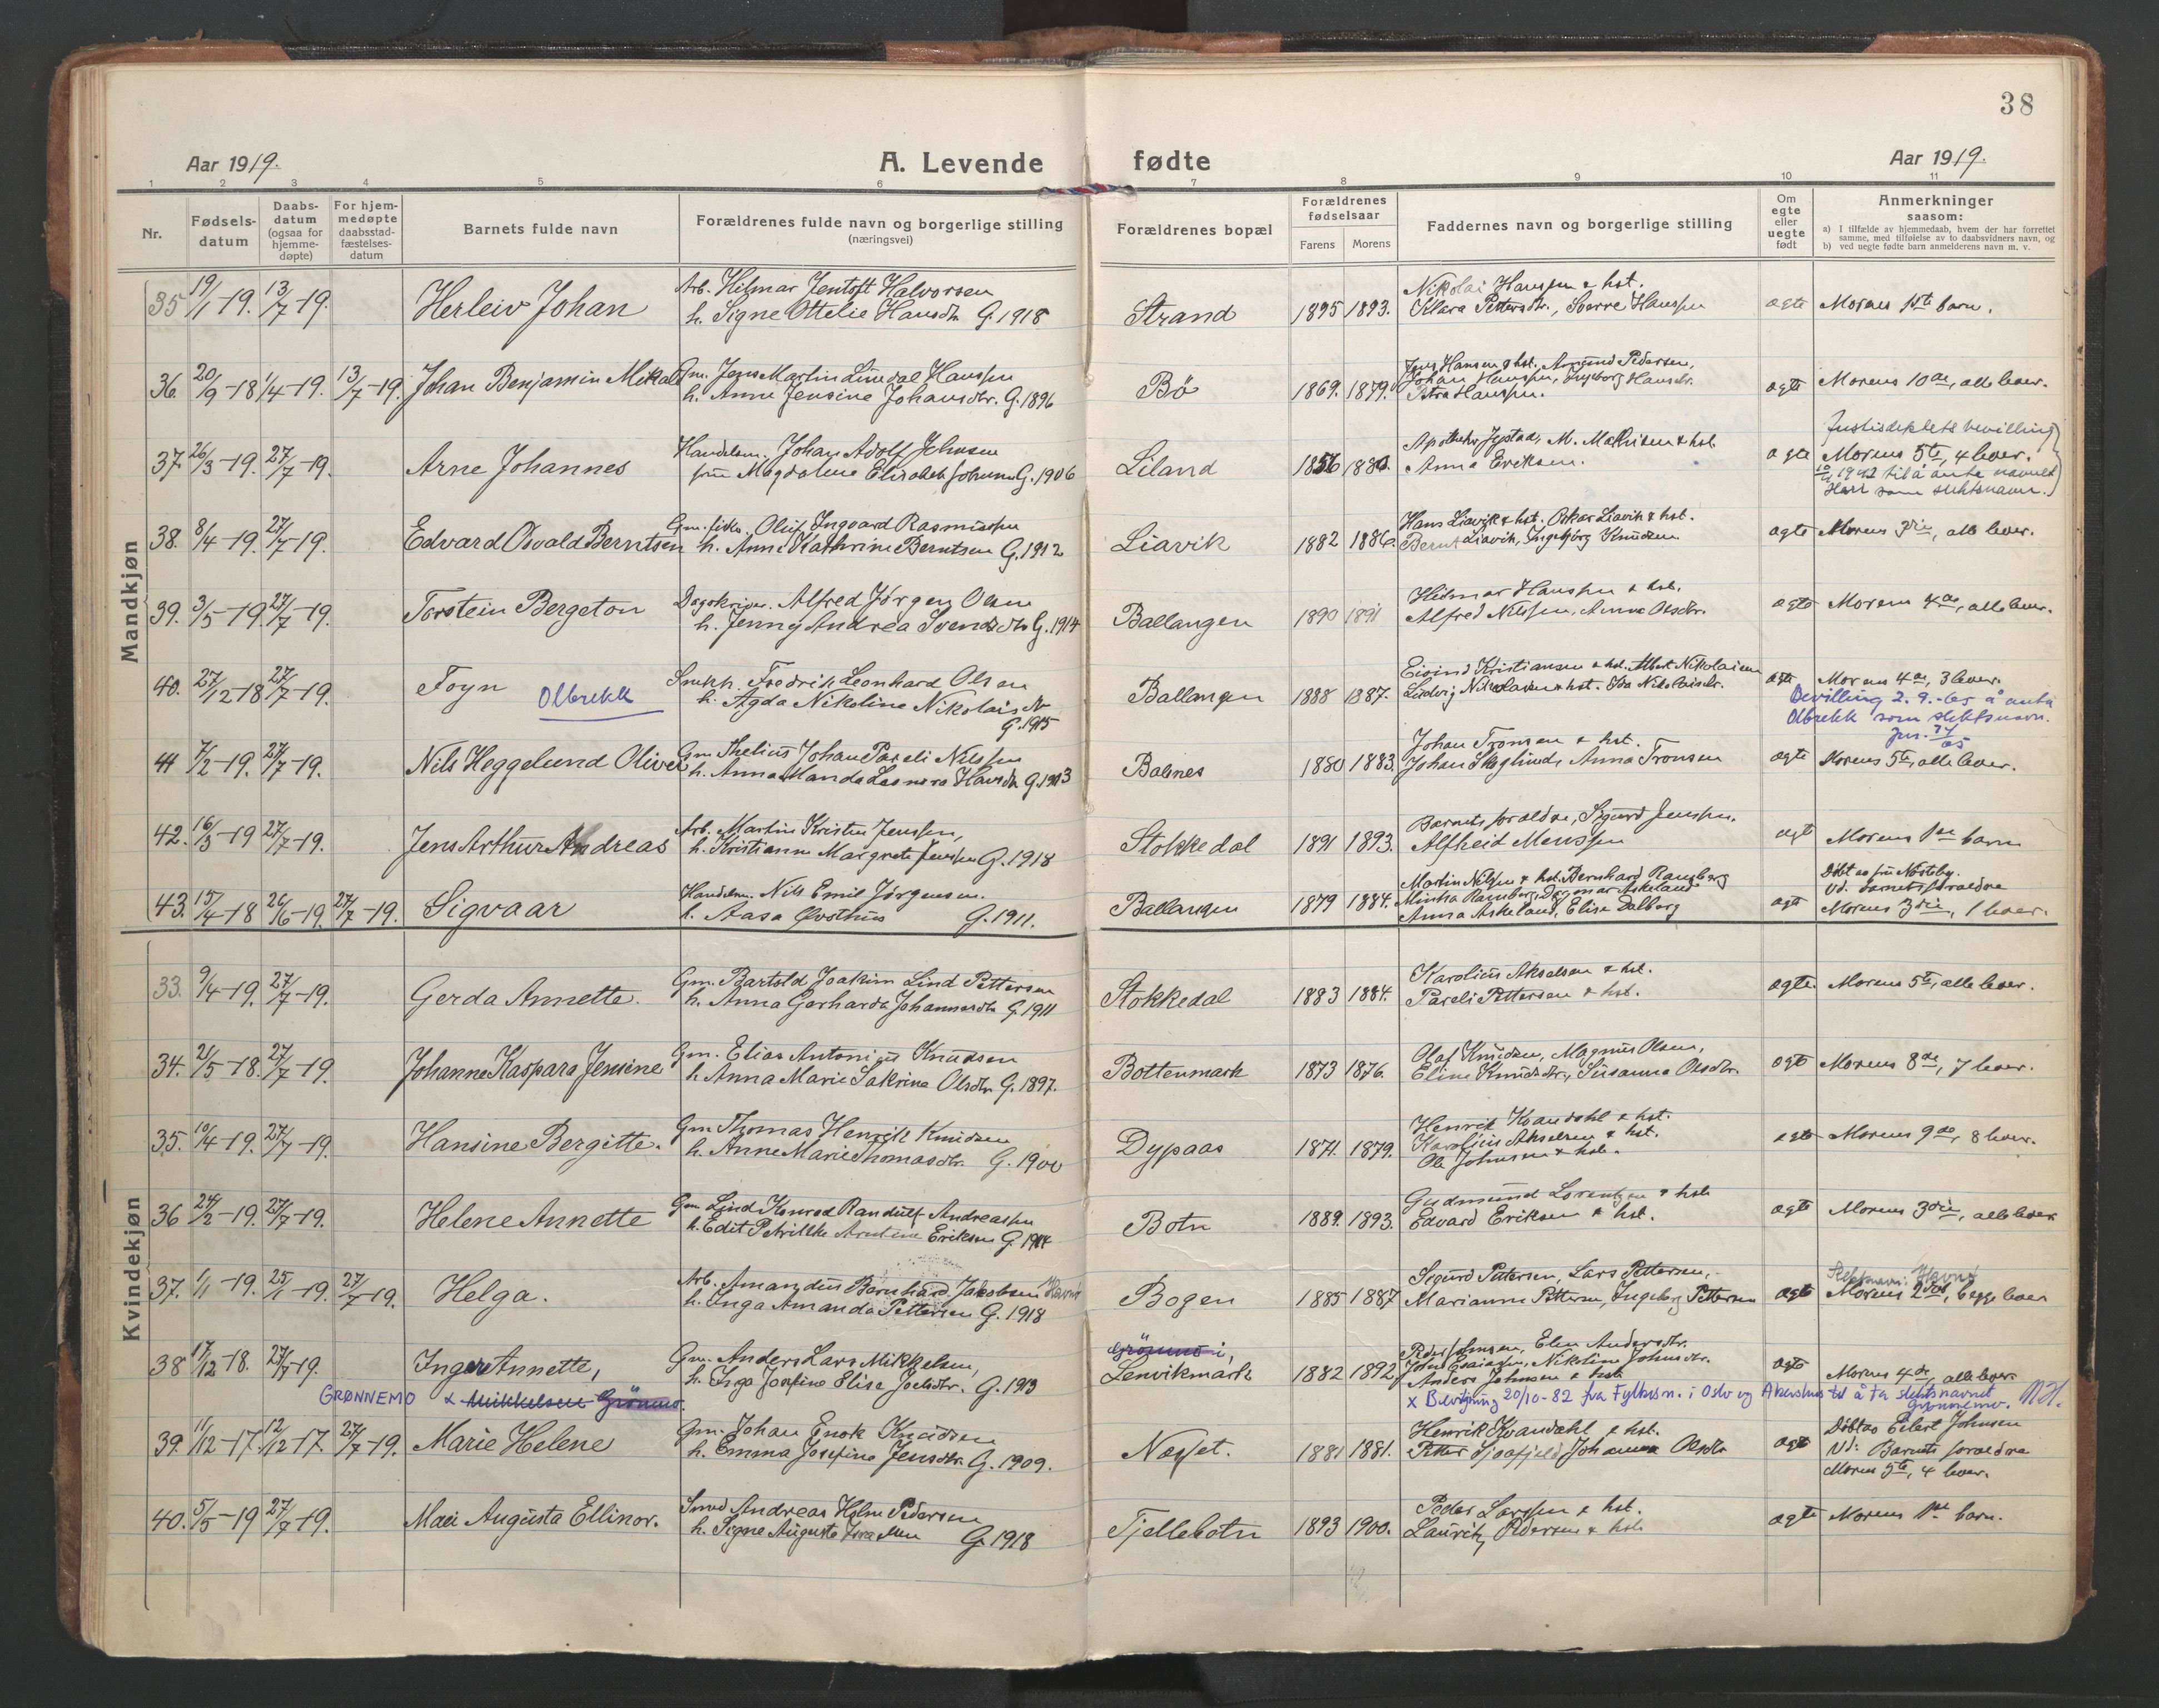 38
Aar 1919. A. Levende fødte Aar 1919.
1 2 3 4 5 6 7 8 9 10 11
Nr. Fødsels-datum Daabs-datum (ogsaa for hjemme-døpte) For hjem-medøpte daabsstad-fæstelses-datum Barnets fulde navn Forældrenes fulde navn og borgerlige stilling (næringsvei) Forældrenes bopæl Forældrenes fødselsaar Farens Morens Faddernes navn og borgerlige stilling Om egte eller uegte født Anmerkninger saasom:
a) I tilfælde av hjemmedaab, hvem der har forrettet samme, med tilføielse av to daabsvidners navn, og
b) ved uegte fødte barn anmelderens navn m. v.
Mandkjøn
35 19/1-19. 13/7-19. Herleiv Johan Arb. Hilmar Jentoft Halvorsen
h. Signe Ottelie Hansdtr. G. 1918 Strand 1895 1893. Nikolai Hanssen & hst.
Klara Pettersdtr., Sverre Hanssen ægte Morens 1ste barn.
36. 20/9-18 1/4-19. 13/7-19. Johan Benjamin Mikal Gm. Jens Martin Lundal Hanssen
h. Anne Jensine Johansdtr. G. 1896 Bö 1869. 1879. Jens Hansen & hst., Amund Pedersen,
Johan Hanssen, Ingeborg Hansdtr.
Petra Hanssen. ægte Morens 10de, alle lever.
37. 26/3-19. 27/7-19. Arne Johannes Handelsm. Johan Adolf Johnsen
fru Magdalene Elisabeth Johnsen G. 1906 Liland 1856 1880. M. Mathisen & hst.
Anna Eriksen. ægte Justisdeptets bevilling
Morens 5te, 4 lever.
1942 til å anta navnet
som slektsnavn.
38. 8/4-19. 27/7-19. Edvard Osvald Berntsen Gm. fisker Oluf Ingvard Rasmussen
h. Anne Kathrine Berntsen G. 1912 Liavik 1882 1886. Hans Liavik & hst. Oskar Liavik & hst.
Bernt Liavik, Ingebjørg Knudsen ægte Morens 3die, alle lever.
39. 3/5-19. 27/7-19. Torstein Bergeton Alfred Jørgen Olsen
h. Jenny Andrea Svendsdtr. G. 1914 Ballangen 1890 1891 Hilmar Hanssen & hst.
Alfred Nilssen, Anna Olsdtr. ægte Morens 4de, alle lever.
40. 27/12-18 27/7-19. Foyn Olbrekk Fredrik Leonhard Olsen
h. Agda Nikoline Nikolaisdtr.
G. 1915 Ballangen 1888 1887. Eivind Kristiansen & hst. Albert Nikolaisen
Ludvig Nikolaisen & hst. Eda Nikolaisdtr. ægte Morens 4de, 3 lever.
Bevilling 2. 9.-65 å anta
Olbrekk som slektsnavn.
41 7/2-19. 27/7-19. Nils Heggelund Oliver Gm. Thelius Johan Pareli Nilssen
h. Anna Manda Leonora Hansdtr. G. 1903 Balsnes 1880 1883. Johan Tronsen & hst.
Johan Skoglund, Anna Tronsen ægte Morens 5te, alle lever.
42. 16/3-19 27/7-19. Jens Arthur Andreas Arb. Martin Kristen Jenssen,
h. Kristianne Margrete Jenssen G. 1918 Stokkedal 1891 1893. Barnets forældre, Sigurd Jenssen,
Alfheid Monssen ægt Morens 1ste barn
43. 15/4-18 26/6-19. 27/7-19. Sigvaar Handelsm. Nils Emil Jørgensen.
h. Aasa Qvosthus G. 1911. Ballangen 1879 1884. Martin Nilssen & hst. Bernhard Ramberg
Minka Ramberg, Dagmar Askeland
Anna Askeland, Elise Dalberg ægt Døbt av fru Nøsteby.
Vd. barnets forældre
Morens 3die, 1 lever.
Kvindekjøn
33. 9/4-19. 27/7-19. Gerda Annette. Gm. Bartold Joakim Lind Pettersen
h. Anna Gerharda Johannesdtr. G. 1911 Stokkedal 1883 1884. Karolius Akselsen & hst.
Pareli Pettersen & hst. ægte Morens 5te, alle lever.
34. 21/5-18. 27/7-19. Johanne Kaspara Jensine Gm. Elias Antonius Knudsen
h. Anna Marie Sakrine Olsdtr. G. 1897. Bottenmark 1873 1876. Olaf Knudsen, Magnus Olsen,
Eline Knudsdtr., Susanne Olsdtr. ægte Morens 8de, 7 lever.
35. 10/4-19. 27/7-19. Hansine Bergitte. Gm. Thomas Henrik Knudsen
h. Anne Marie Thomasdtr. G. 1900 Dypaas 1871. 1879. Henrik Kvandahl & hst.
Karolius Akselsen & hst.
Ole Johnsen & hst. ægte Morens 9de, 8 lever.
36 24/2-19. 27/7-19. Helene Annette Gm. Lind Konrad Randulf Andreassen
h. Edit Petrikke Arntine Eriksen G. 1914 Botn 1889. 1893. Gudmund Lorentzen & hst.
Edvard Eriksen & hst. ægte Morens 3die, alle lever
37. 1/1-19. 25/1-19. 27/7-19. Helga. Arb. Amandus Bernhard Jakobsen Havnø
h. Inga Amanda Pettersen G. 1918 Bogen 1885 1887 Sigurd Pettersen, Lars Pettersen,
Marianne Pettersen, Ingeborg Pettersen ægte Slektsnavn: Havnø
Morens 2det, begge lever
38 17/12-18. 27/7-19. Inger Annette, Gm. Anders Lars Mikkelsen,
h. Inga Josefine Elise Joelsdtr. G. 1913 Grönmo i,
Lenvikmark 1882 1892 Peder Johnsen, Elen Andersdtr.
John Esaiassen, Nikoline Johnsdtr.
Anders Johnsen & hst. ægte Morens 4de, alle lever
GRØNNEMO x Mikkelsen Grönmo. x Bevilgning 20/10-82 fra Fylkesm. i Oslo og Akershus til å ta slektsnavnet
Grønnemo.
39. 11/12-17. 12/12-17. 27/7-19. Marie Helene Gm. Johan Enok Knudsen
h. Emma Josefine Jensdtr. G. 1909. Næsset. 1881 1881. Henrik Kvandahl & hst.
Petter Johanna Olsdtr ægte Døbt av Eilert Johnsen
Vd: Barnets forældre
Morens 5te, 4 lever.
40. 5/5-19 27/7-19. Mari Augusta Ellinor. Smed Andreas Holm Pedersen
h. Signe Augusta G. 1918 Tjellebotn 1893 1900. Peder Larssen & hst.
Lauritz Pedersen & hst. ægte Morens 1ste barn.